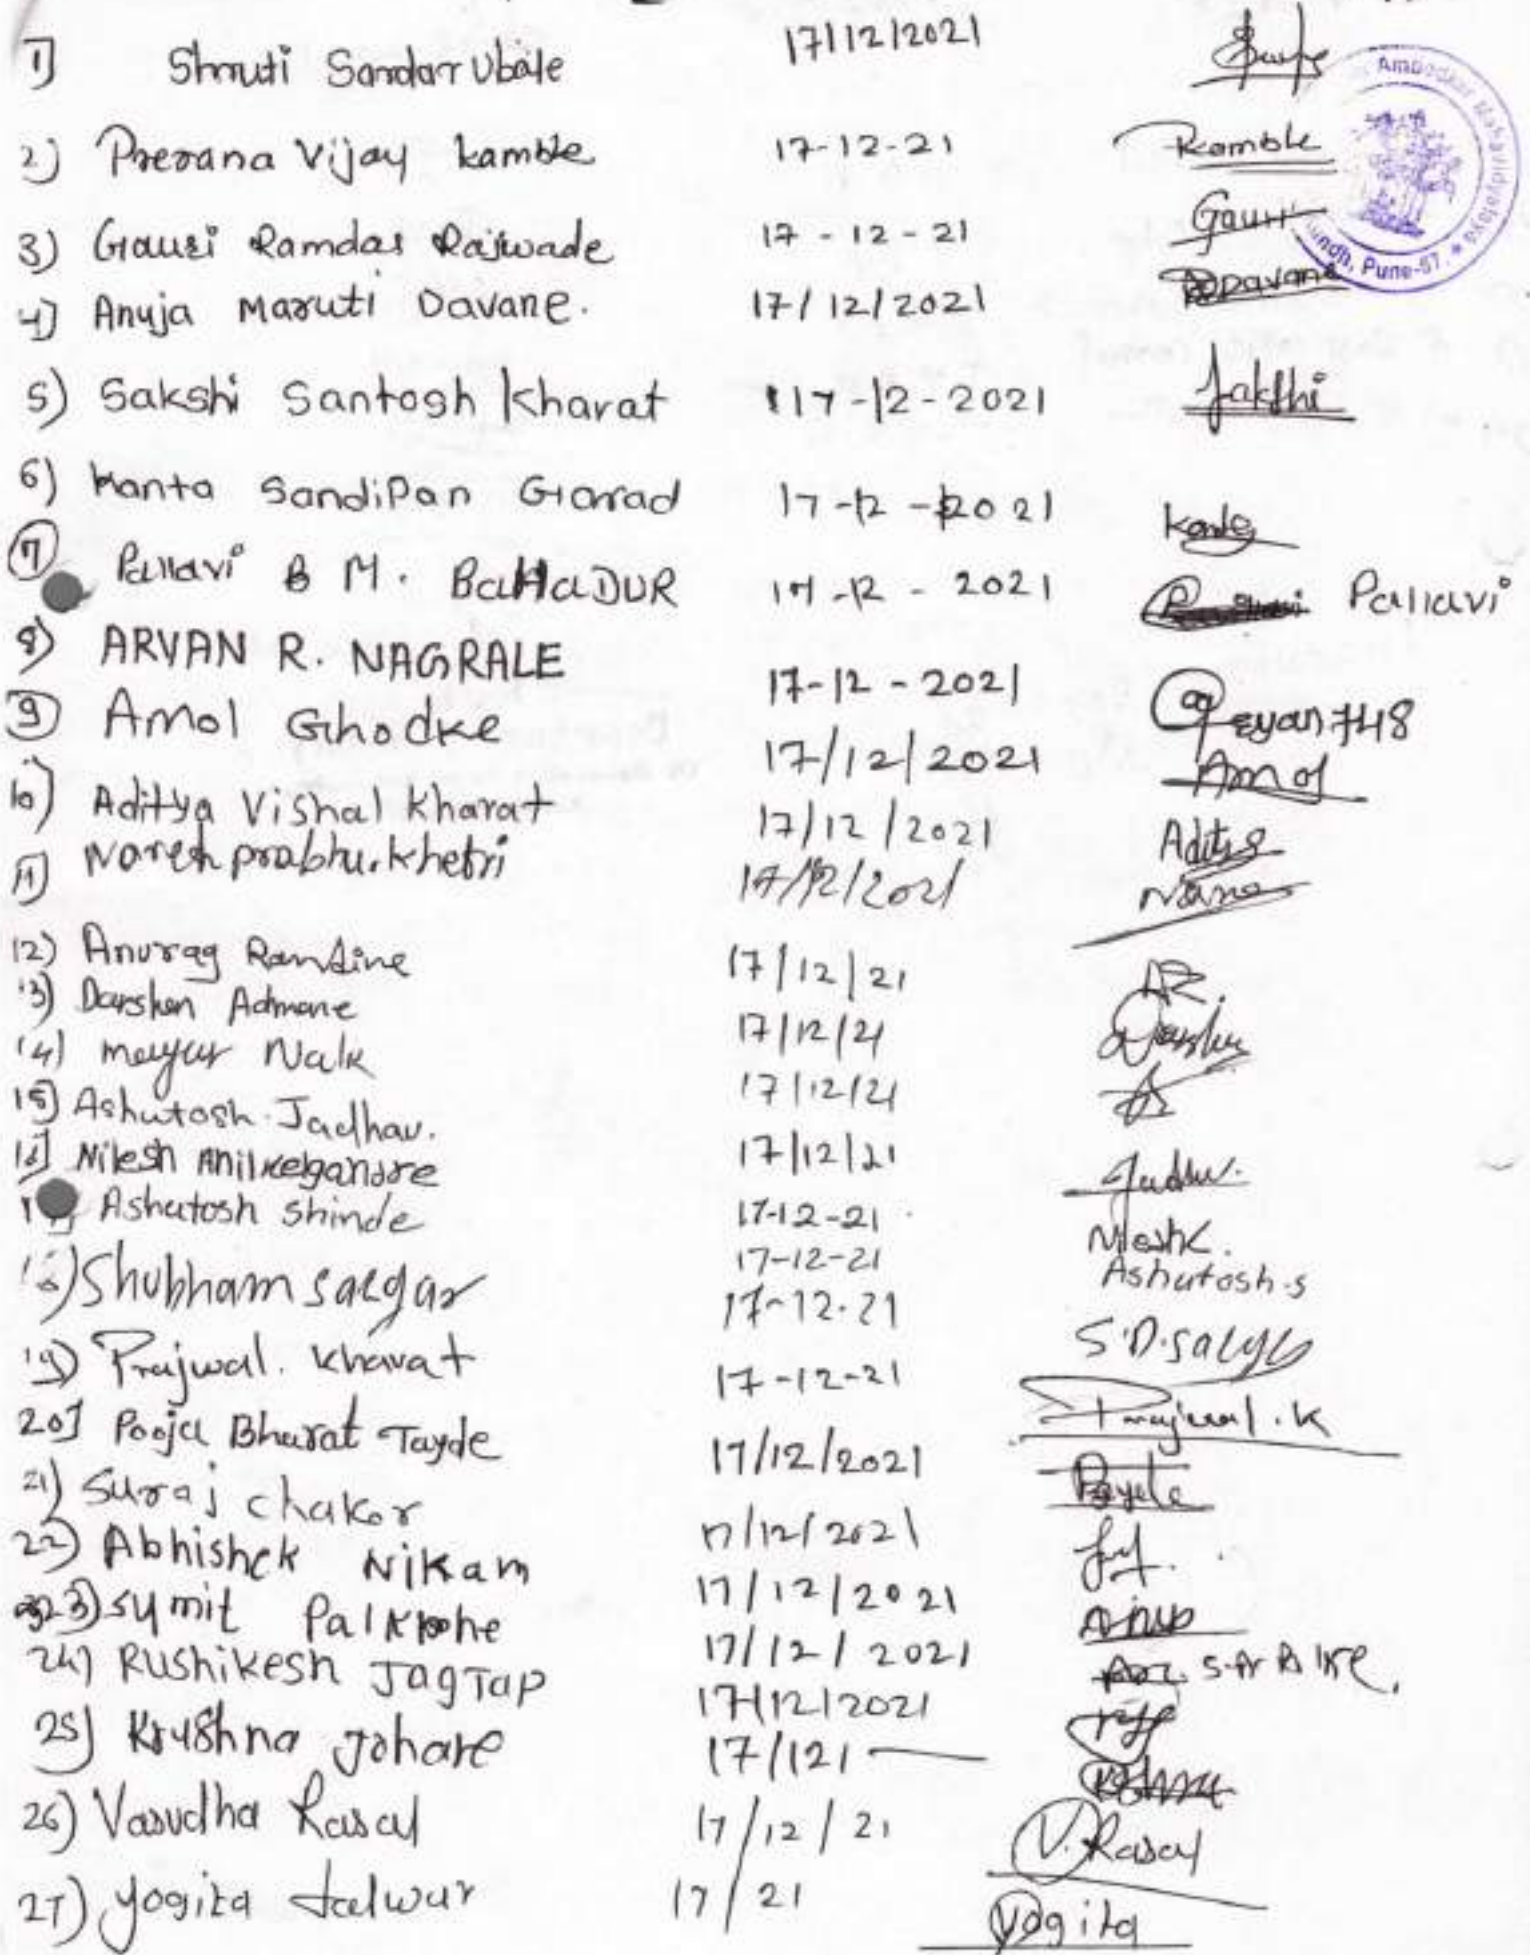 1) Shruti Sandar Ubale 17/12/2021
2) Prerana Vijay kamble 17-12-21 Kamble
3) Gauri Ramdas Rajwade 17-12-21 Gauri
4) Anuja Maruti Davane. 17/12/2021 Davane
5) Sakshi Santosh Kharat 17-12-2021 Sakshi
6) Kanta Sandipan Garad 17-12-2021
7) Pallavi B M. BaHaDUR 17-12-2021 Pallavi
8) ARYAN R. NAGRALE 17-12-2021
9) Amol Ghodke 17/12/2021 Amol
10) Aditya Vishal Kharat 17/12/2021 Aditya
11) Naresh prabhu. Khetri 17/12/2021
12) Anurag Randive 17/12/21 AR.
13) Darshan Admane 17/12/21
14) mayur Naik 17/12/21
15) Ashutosh. Jadhav. 17/12/21 Jadhav.
16) Nilesh Anil kelgandre 17-12-21 Nilesh K.
17) Ashutosh Shinde 17-12-21 Ashutosh.s
18) Shubham Salgar 17-12-21
19) Prajwal. Kharat 17-12-21 Prajwal.K
20) Pooja Bharat Tayde 17/12/2021
21) Suraj chakor 17/12/2021
22) Abhishek Nikam 17/12/2021
23) Sumit Palkhe 17/12/2021
24) Rushikesh JagTap 17/12/2021
25) Krushna Johare 17/12/ —
26) Vasudha Rasal 17/12/21 V. Rasal
27) yogita talwar 17/21 yogita
Ambedkar Mahavidyalaya
Pune-67.